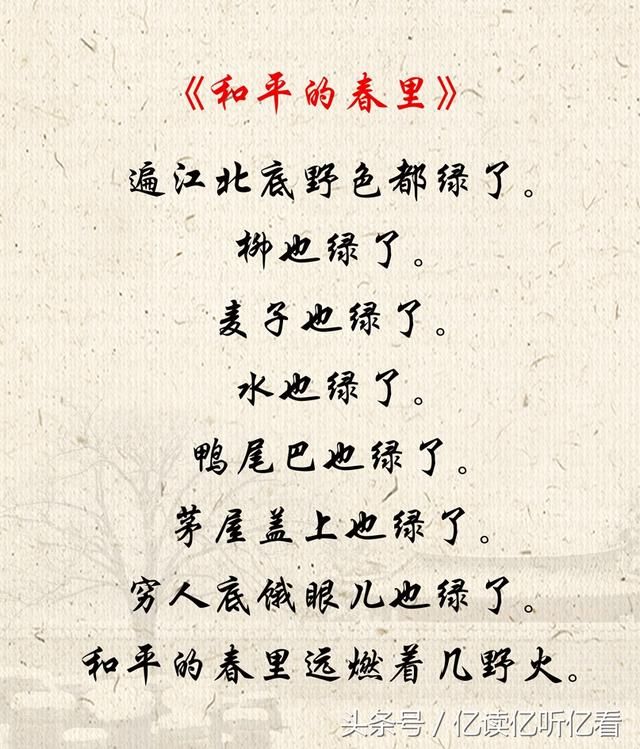 《和平的春里》
遍江北底野色都绿了。
柳也绿了。
麦子也绿了。
水也绿了。
鸭尾巴也绿了。
茅屋盖上也绿了。
穷人底饿眼儿也绿了。
和平的春里远燃着几野火。
头条号/亿读亿听亿看